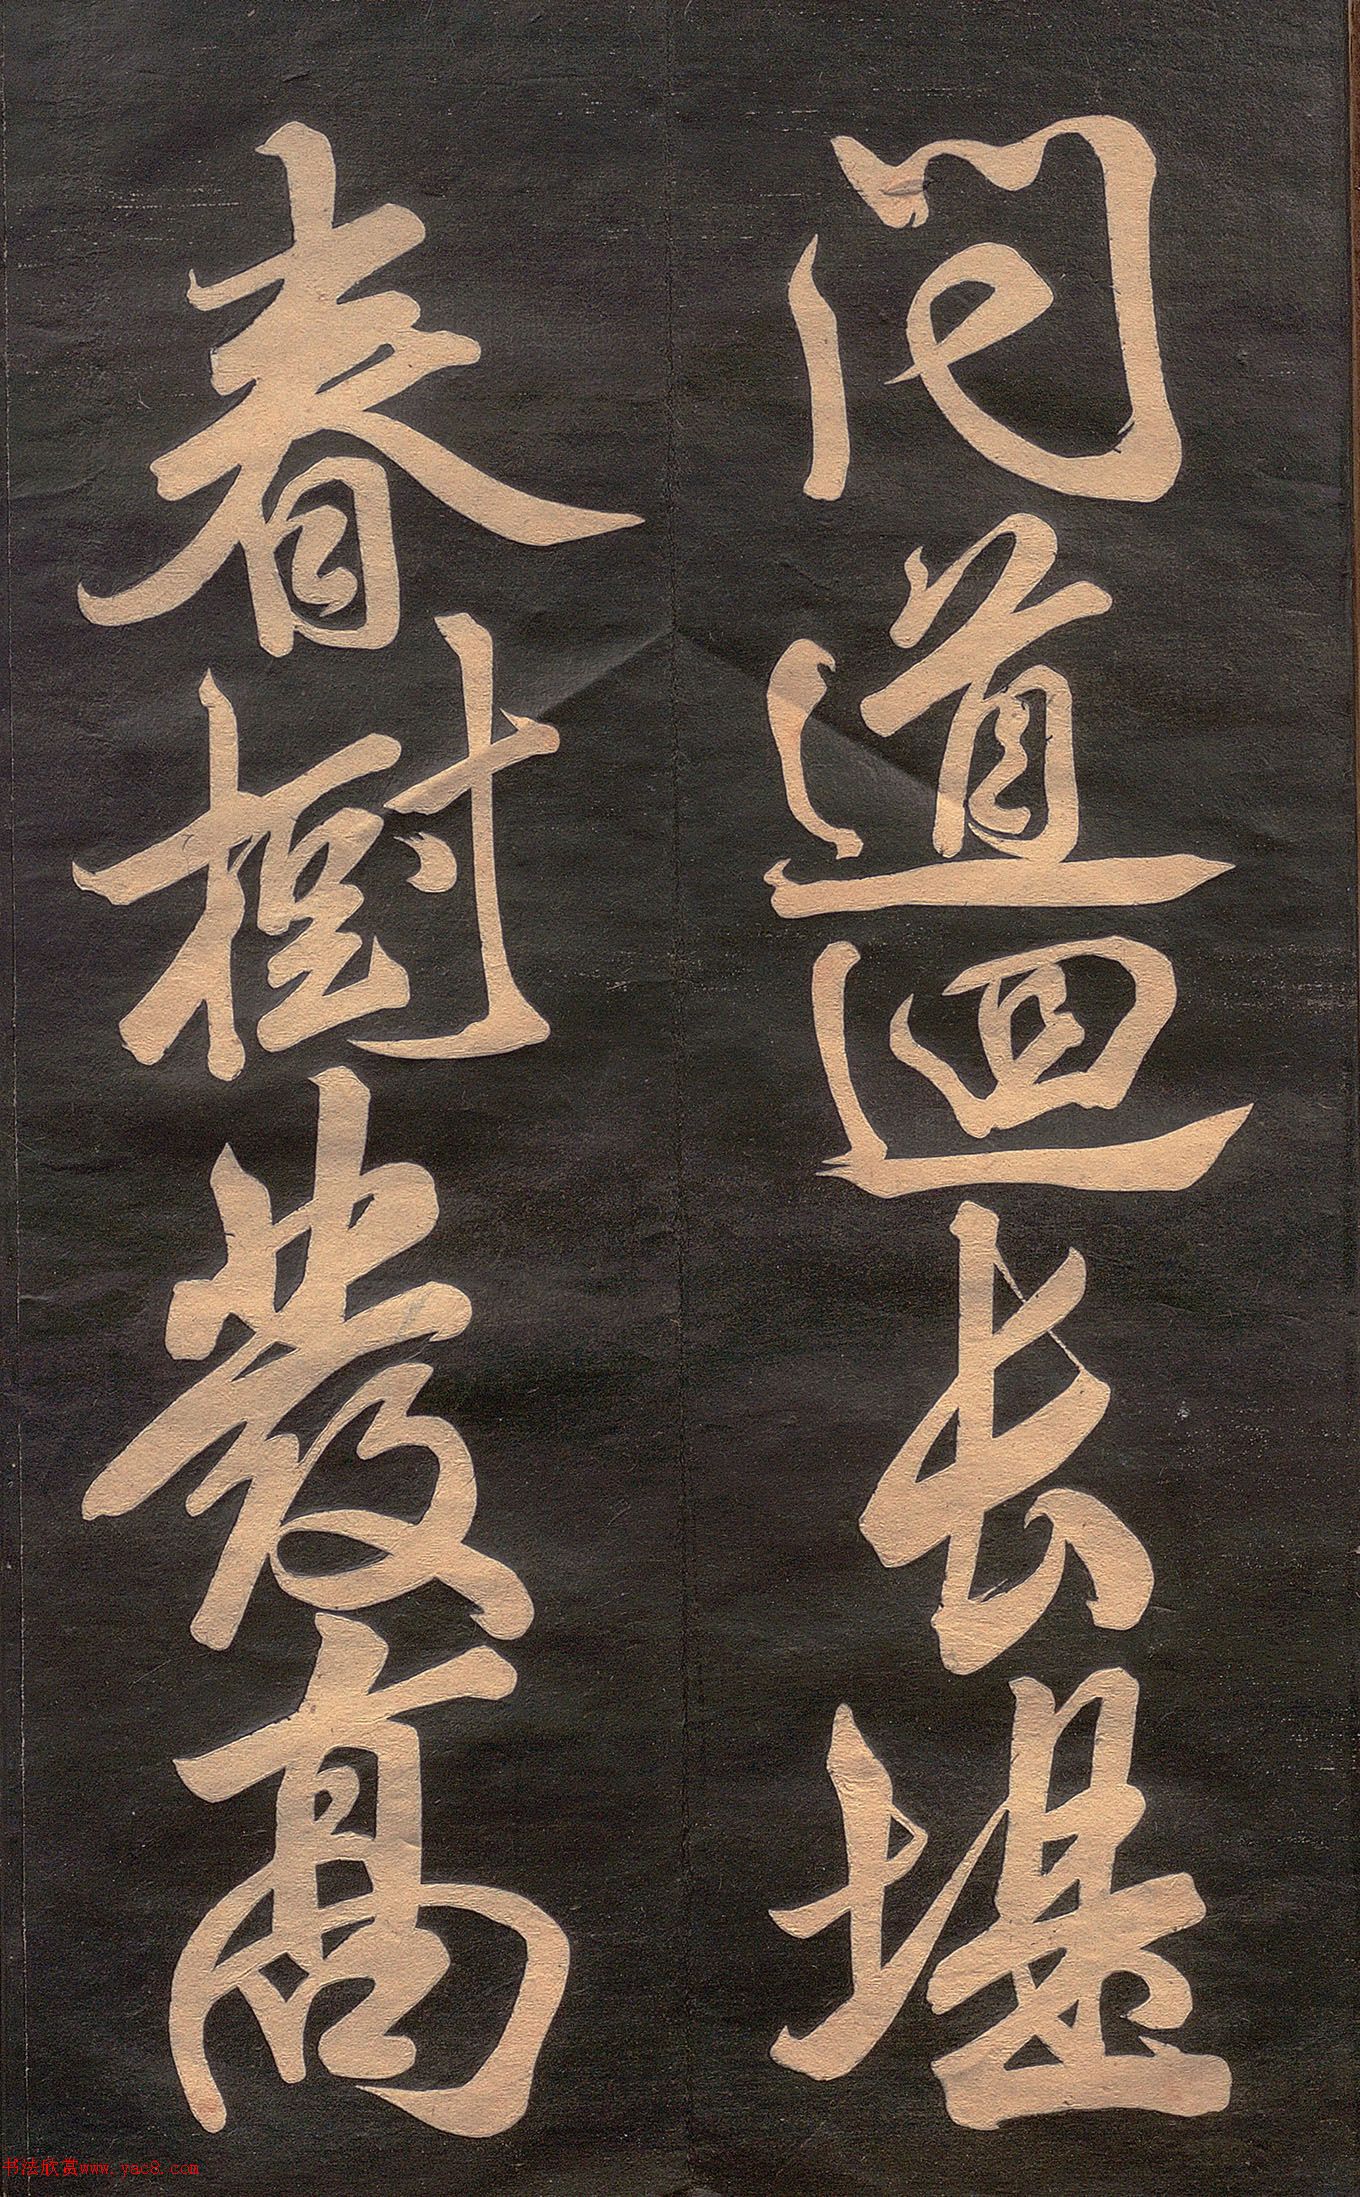 问道迴长堤
春树发高
书法欣赏www.yac8.com